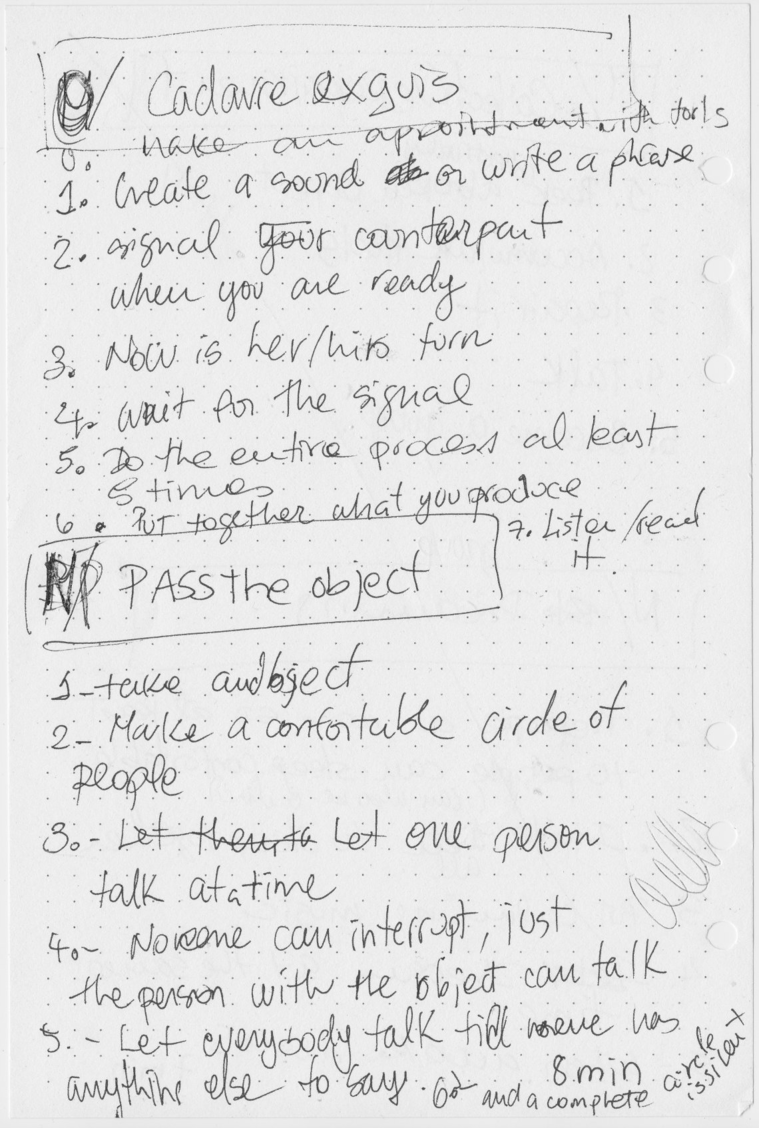 Cadavre exquis
0. make an appointment with tools
1. Create a sound or write a phrase
2. signal your counterpart
when you are ready
3. Now is her/his turn
4. wait for the signal
5. Do the entire process at least
5 times
6. Put together what you produce
7. Listen/read
it.
PASS the object
1- take an object
2- Make a confortable circle of
people
3.- Let them to Let one person
talk at a time
4.- No one can interrupt, just
the person with the object can talk
5.- Let everybody talk till noone has
anything else to say. 6.-
8 min
and a complete circle
is silent